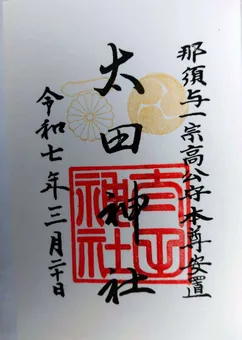 那須与一宗高公守本尊安置
太田神社
令和七年三月二十日
太田
神社